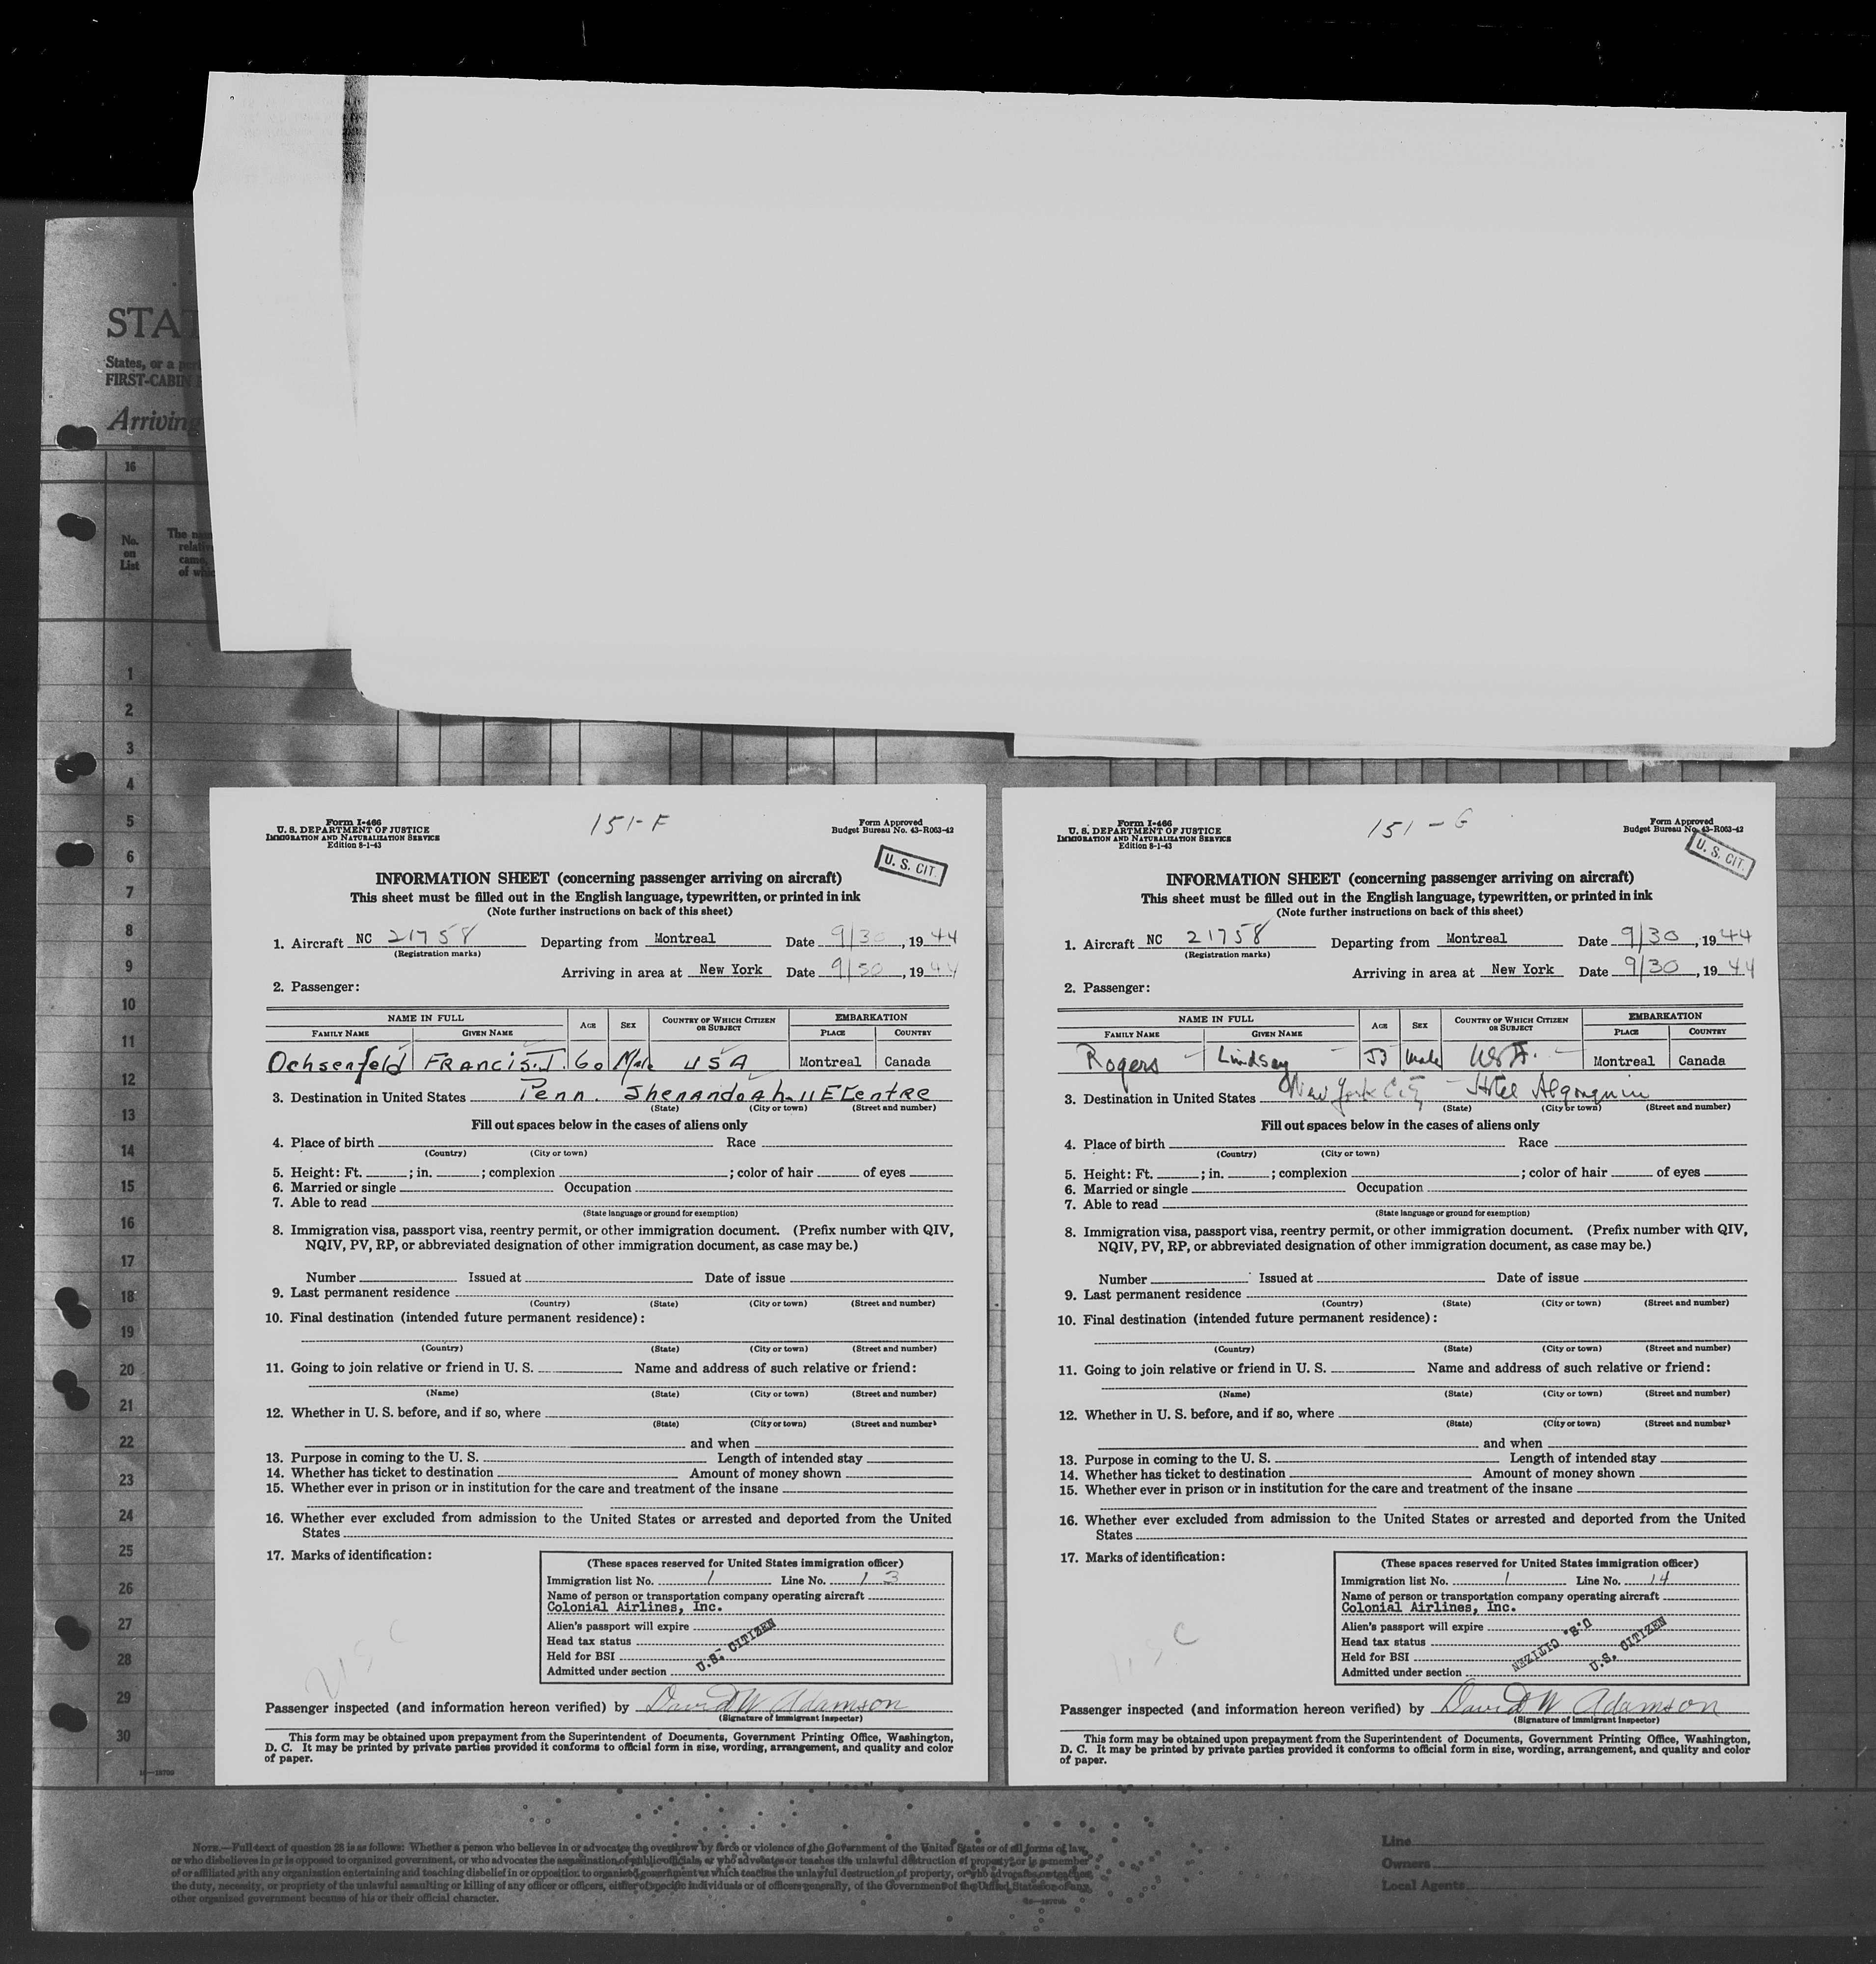 STAT
States, or a
FIRST-CABIN
Arriving
16
No.
on
List
The
came,
1
2
3
4
5
6
7
8
9
10
11
12
13
14
15
16
17
18
19
20
21
22
23
24
25
26
27
28
29
30
Form I-466
U. S. DEPARTMENT OF JUSTICE
IMMIGRATION AND NATURALIZATION SERVICE
Edition 8-1-43
151-F
Form Approved
Budget Bureau No. 43-R063-42
U. S. CIT.
INFORMATION SHEET (concerning passenger arriving on aircraft)
This sheet must be filled out in the English language, typewritten, or printed in ink
(Note further instructions on back of this sheet)
1. Aircraft NC 21758 Departing from Montreal Date 9/30, 1944
(Registration marks)
Arriving in area at New York Date 9/30, 1944
2. Passenger:
NAME IN FULL AGE SEX COUNTRY OF WHICH CITIZEN OR SUBJECT EMBARKATION
FAMILY NAME GIVEN NAME PLACE COUNTRY
Ochsenfeld FRANCIS.J. 60 Male USA Montreal Canada
3. Destination in United States Penn. Shenandoah 11 E Centre
(State) (City or town) (Street and number)
Fill out spaces below in the cases of aliens only
4. Place of birth Race
(Country) (City or town)
5. Height: Ft. ; in. ; complexion ; color of hair of eyes
6. Married or single Occupation
7. Able to read
(State language or ground for exemption)
8. Immigration visa, passport visa, reentry permit, or other immigration document. (Prefix number with QIV,
NQIV, PV, RP, or abbreviated designation of other immigration document, as case may be.)
Number Issued at Date of issue
9. Last permanent residence
(Country) (State) (City or town) (Street and number)
10. Final destination (intended future permanent residence):
(Country) (State) (City or town) (Street and number)
11. Going to join relative or friend in U. S. Name and address of such relative or friend:
(Name) (State) (City or town) (Street and number)
12. Whether in U. S. before, and if so, where
(State) (City or town) (Street and number)
and when
13. Purpose in coming to the U. S. Length of intended stay
14. Whether has ticket to destination Amount of money shown
15. Whether ever in prison or in institution for the care and treatment of the insane
16. Whether ever excluded from admission to the United States or arrested and deported from the United
States
17. Marks of identification:
(These spaces reserved for United States immigration officer)
Immigration list No. 1 Line No. 13
Name of person or transportation company operating aircraft
Colonial Airlines, Inc.
Alien's passport will expire
Head tax status
Held for BSI
Admitted under section
U.S. CITIZEN
USC
Passenger inspected (and information hereon verified) by David W Adamson
(Signature of immigrant inspector)
This form may be obtained upon prepayment from the Superintendent of Documents, Government Printing Office, Washington,
D. C. It may be printed by private parties provided it conforms to official form in size, wording, arrangement, and quality and color
of paper.
Form I-466
U. S. DEPARTMENT OF JUSTICE
IMMIGRATION AND NATURALIZATION SERVICE
Edition 8-1-43
151-G
Form Approved
Budget Bureau No. 43-R063-42
U. S. CIT.
INFORMATION SHEET (concerning passenger arriving on aircraft)
This sheet must be filled out in the English language, typewritten, or printed in ink
(Note further instructions on back of this sheet)
1. Aircraft NC 21758 Departing from Montreal Date 9/30, 1944
(Registration marks)
Arriving in area at New York Date 9/30, 1944
2. Passenger:
NAME IN FULL AGE SEX COUNTRY OF WHICH CITIZEN OR SUBJECT EMBARKATION
FAMILY NAME GIVEN NAME PLACE COUNTRY
Rogers Lindsay 53 Male USA. Montreal Canada
3. Destination in United States New York City - Hotel Algonquin
(State) (City or town) (Street and number)
Fill out spaces below in the cases of aliens only
4. Place of birth Race
(Country) (City or town)
5. Height: Ft. ; in. ; complexion ; color of hair of eyes
6. Married or single Occupation
7. Able to read
(State language or ground for exemption)
8. Immigration visa, passport visa, reentry permit, or other immigration document. (Prefix number with QIV,
NQIV, PV, RP, or abbreviated designation of other immigration document, as case may be.)
Number Issued at Date of issue
9. Last permanent residence
(Country) (State) (City or town) (Street and number)
10. Final destination (intended future permanent residence):
(Country) (State) (City or town) (Street and number)
11. Going to join relative or friend in U. S. Name and address of such relative or friend:
(Name) (State) (City or town) (Street and number)
12. Whether in U. S. before, and if so, where
(State) (City or town) (Street and number)
and when
13. Purpose in coming to the U. S. Length of intended stay
14. Whether has ticket to destination Amount of money shown
15. Whether ever in prison or in institution for the care and treatment of the insane
16. Whether ever excluded from admission to the United States or arrested and deported from the United
States
17. Marks of identification:
(These spaces reserved for United States immigration officer)
Immigration list No. 1 Line No. 14
Name of person or transportation company operating aircraft
Colonial Airlines, Inc.
Alien's passport will expire
Head tax status
Held for BSI
Admitted under section
U.S. CITIZEN
U.S. CITIZEN
USC
Passenger inspected (and information hereon verified) by David W Adamson
(Signature of immigrant inspector)
This form may be obtained upon prepayment from the Superintendent of Documents, Government Printing Office, Washington,
D. C. It may be printed by private parties provided it conforms to official form in size, wording, arrangement, and quality and color
of paper.
NOTE.—Full text of question 28 is as follows: Whether a person who believes in or advocates the overthrow by force or violence of the Government of the United States or of all forms of law,
or who disbelieves in or is opposed to organized government, or who advocates the assassination of public officials, or who advocates or teaches the unlawful destruction of property, or is a member
of or affiliated with any organization entertaining and teaching disbelief in or opposition to organized government or which teaches the unlawful destruction of property, or who advocates or teaches
the duty, necessity, or propriety of the unlawful assaulting or killing of any officer or officers, either of specific individuals or of officers generally, of the Government of the United States or of any
other organized government because of his or their official character.
Line
Owners
Local Agents